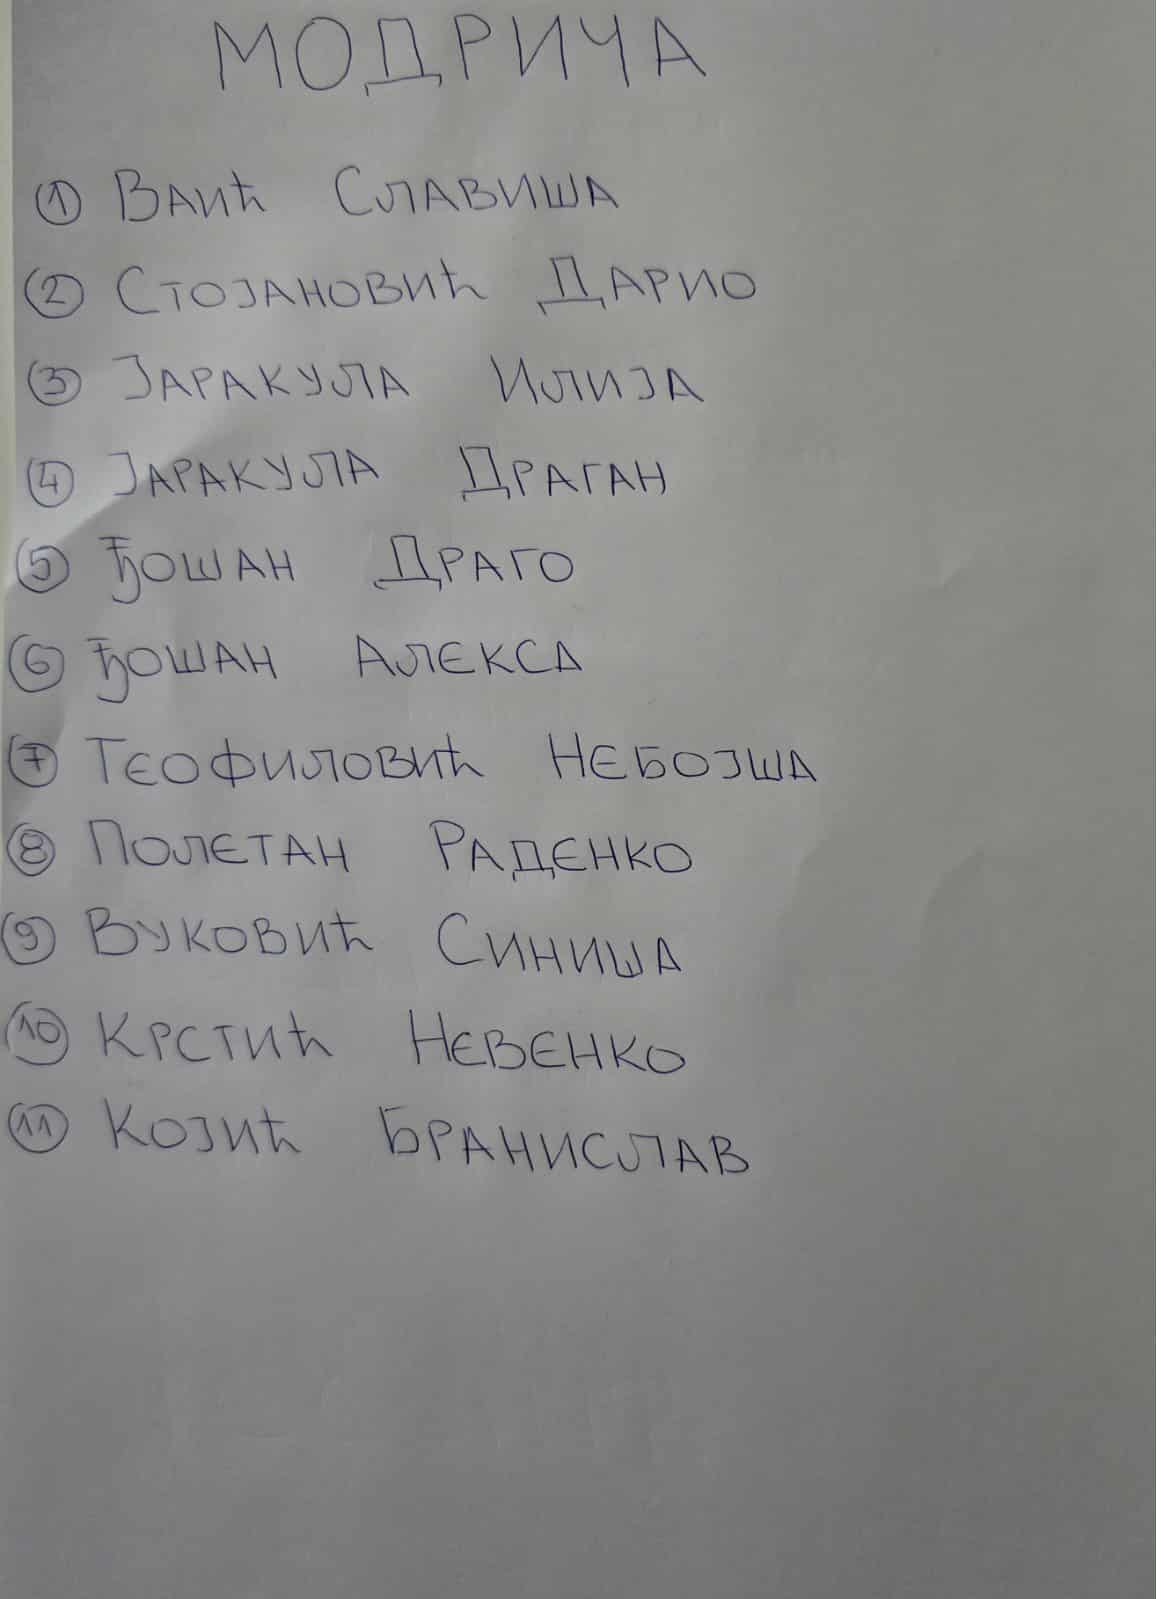 МОДРИЧА
1 Ваић Славиша
2 Стојановић Дарио
3 Јаракула Илија
4 Јаракула Драган
5 Ђошан Драго
6 Ђошан Алекса
7 Теофиловић Небојша
8 Полетан Раденко
9 Вуковић Синиша
10 Крстић Невенко
11 Којић Бранислав